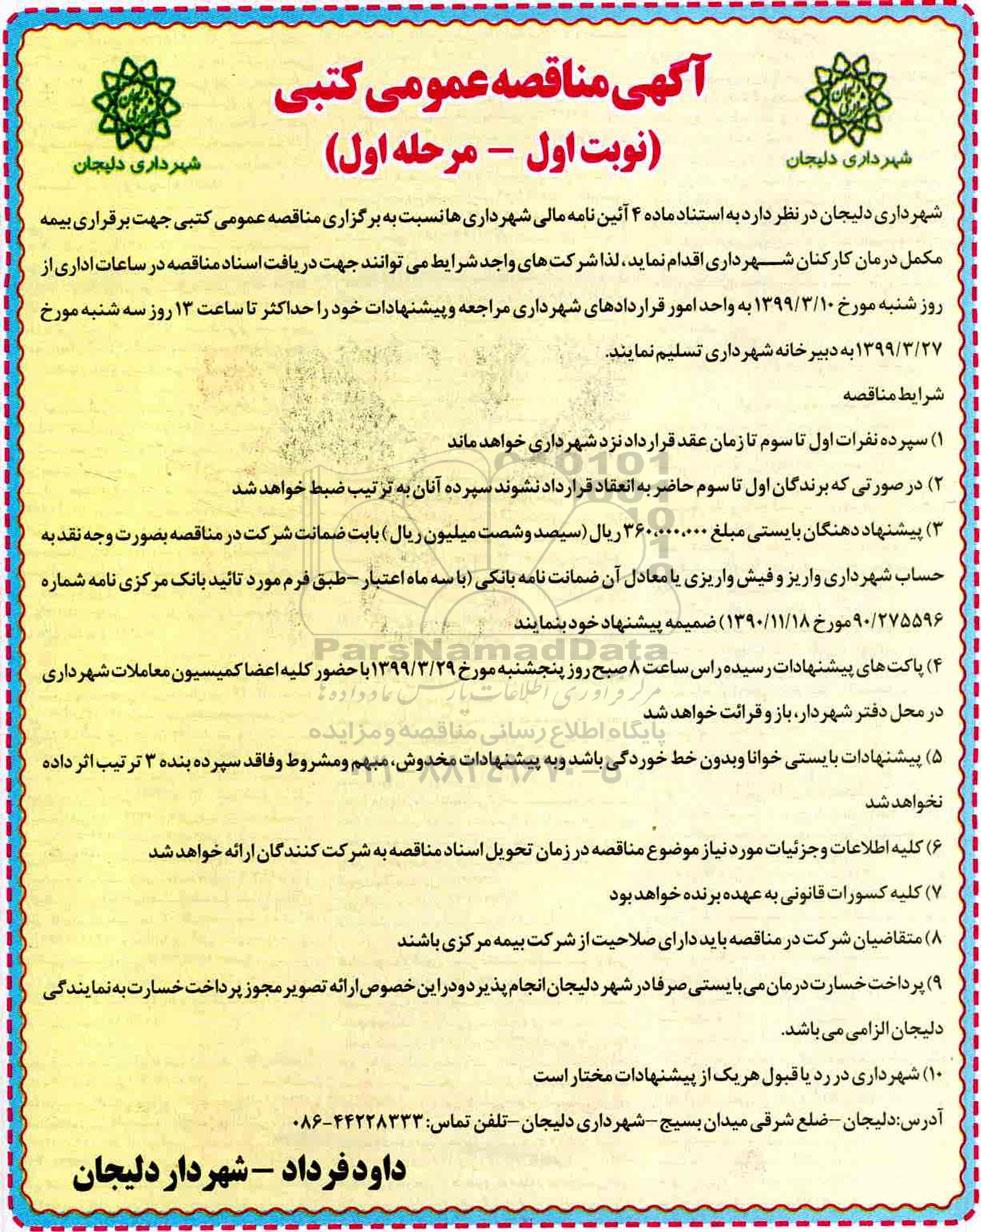 آگهی مناقصه عمومی کتبی
(نوبت اول - مرحله اول)
شهرداری دلیجان
شهرداری دلیجان
شهرداری دلیجان در نظر دارد به استناد ماده ۴ آئین نامه مالی شهرداری ها نسبت به برگزاری مناقصه عمومی کتبی جهت برقراری بیمه
مکمل درمان کارکنان شهرداری اقدام نماید، لذا شرکت های واجد شرایط می توانند جهت دریافت اسناد مناقصه در ساعات اداری از
روز شنبه مورخ ۱۳۹۹/۳/۱۰ به واحد امور قراردادهای شهرداری مراجعه و پیشنهادات خود را حداکثر تا ساعت ۱۳ روز سه شنبه مورخ
۱۳۹۹/۳/۲۷ به دبیرخانه شهرداری تسلیم نمایند.
شرایط مناقصه
۱) سپرده نفرات اول تا سوم تا زمان عقد قرارداد نزد شهرداری خواهد ماند
۲) در صورتی که برندگان اول تا سوم حاضر به انعقاد قرارداد نشوند سپرده آنان به ترتیب ضبط خواهد شد
۳) پیشنهاد دهنگان بایستی مبلغ ۳۶۰،۰۰۰،۰۰۰ ریال (سیصد وشصت میلیون ریال) بابت ضمانت شرکت در مناقصه بصورت وجه نقد به
حساب شهرداری واریز و فیش واریزی یا معادل آن ضمانت نامه بانکی (با سه ماه اعتبار -طبق فرم مورد تائید بانک مرکزی نامه شماره
۹۰/۲۷۵۵۹۶ مورخ ۱۳۹۰/۱۱/۱۸) ضمیمه پیشنهاد خود بنمایند
۴) پاکت های پیشنهادات رسیده راس ساعت ۸ صبح روز پنجشنبه مورخ ۱۳۹۹/۳/۲۹ با حضور کلیه اعضا کمیسیون معاملات شهرداری
در محل دفتر شهردار، باز و قرائت خواهد شد
۵) پیشنهادات بایستی خوانا وبدون خط خوردگی باشد وبه پیشنهادات مخدوش، مبهم ومشروط وفاقد سپرده بنده ۳ ترتیب اثر داده
نخواهد شد
۶) کلیه اطلاعات و جزئیات مورد نیاز موضوع مناقصه در زمان تحویل اسناد مناقصه به شرکت کنندگان ارائه خواهد شد
۷) کلیه کسورات قانونی به عهده برنده خواهد بود
۸) متقاضیان شرکت در مناقصه باید دارای صلاحیت از شرکت بیمه مرکزی باشند
۹) پرداخت خسارت درمان می بایستی صرفا در شهر دلیجان انجام پذیرد ودراین خصوص ارائه تصویر مجوز پرداخت خسارت به نمایندگی
دلیجان الزامی می باشد.
۱۰) شهرداری در رد یا قبول هر یک از پیشنهادات مختار است
آدرس: دلیجان -ضلع شرقی میدان بسیج -شهرداری دلیجان -تلفن تماس: ۴۴۲۲۸۳۳۳-۰۸۶
داود فرداد - شهردار دلیجان
ParsNamadData
مرکز فرآوری اطلاعات پارس نماد داده ها
پایگاه اطلاع رسانی مناقصه و مزایده